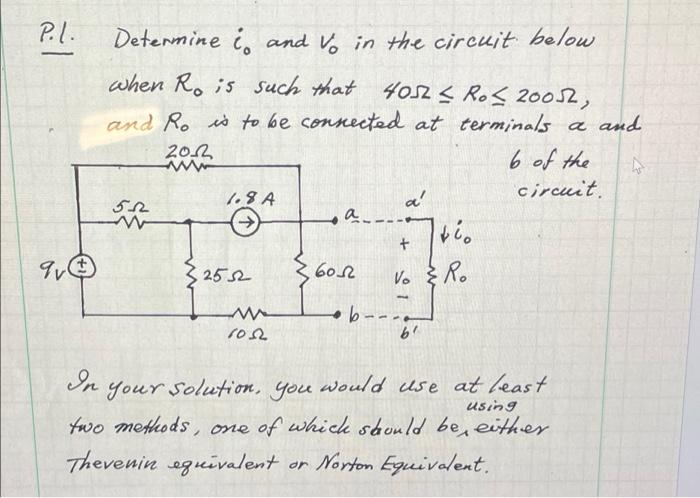 P.1. Determine i₀ and V₀ in the circuit below
when R₀ is such that 40Ω ≤ R₀ ≤ 200Ω,
and R₀ is to be connected at terminals a and
b of the
circuit.
20Ω
5Ω
1.8 A
a
a'
↓i₀
9v
25Ω
60Ω
+
V₀
-
R₀
10Ω
b
b'
In your solution, you would use at least
two methods, one of which should be using either
Thevenin equivalent or Norton Equivalent.